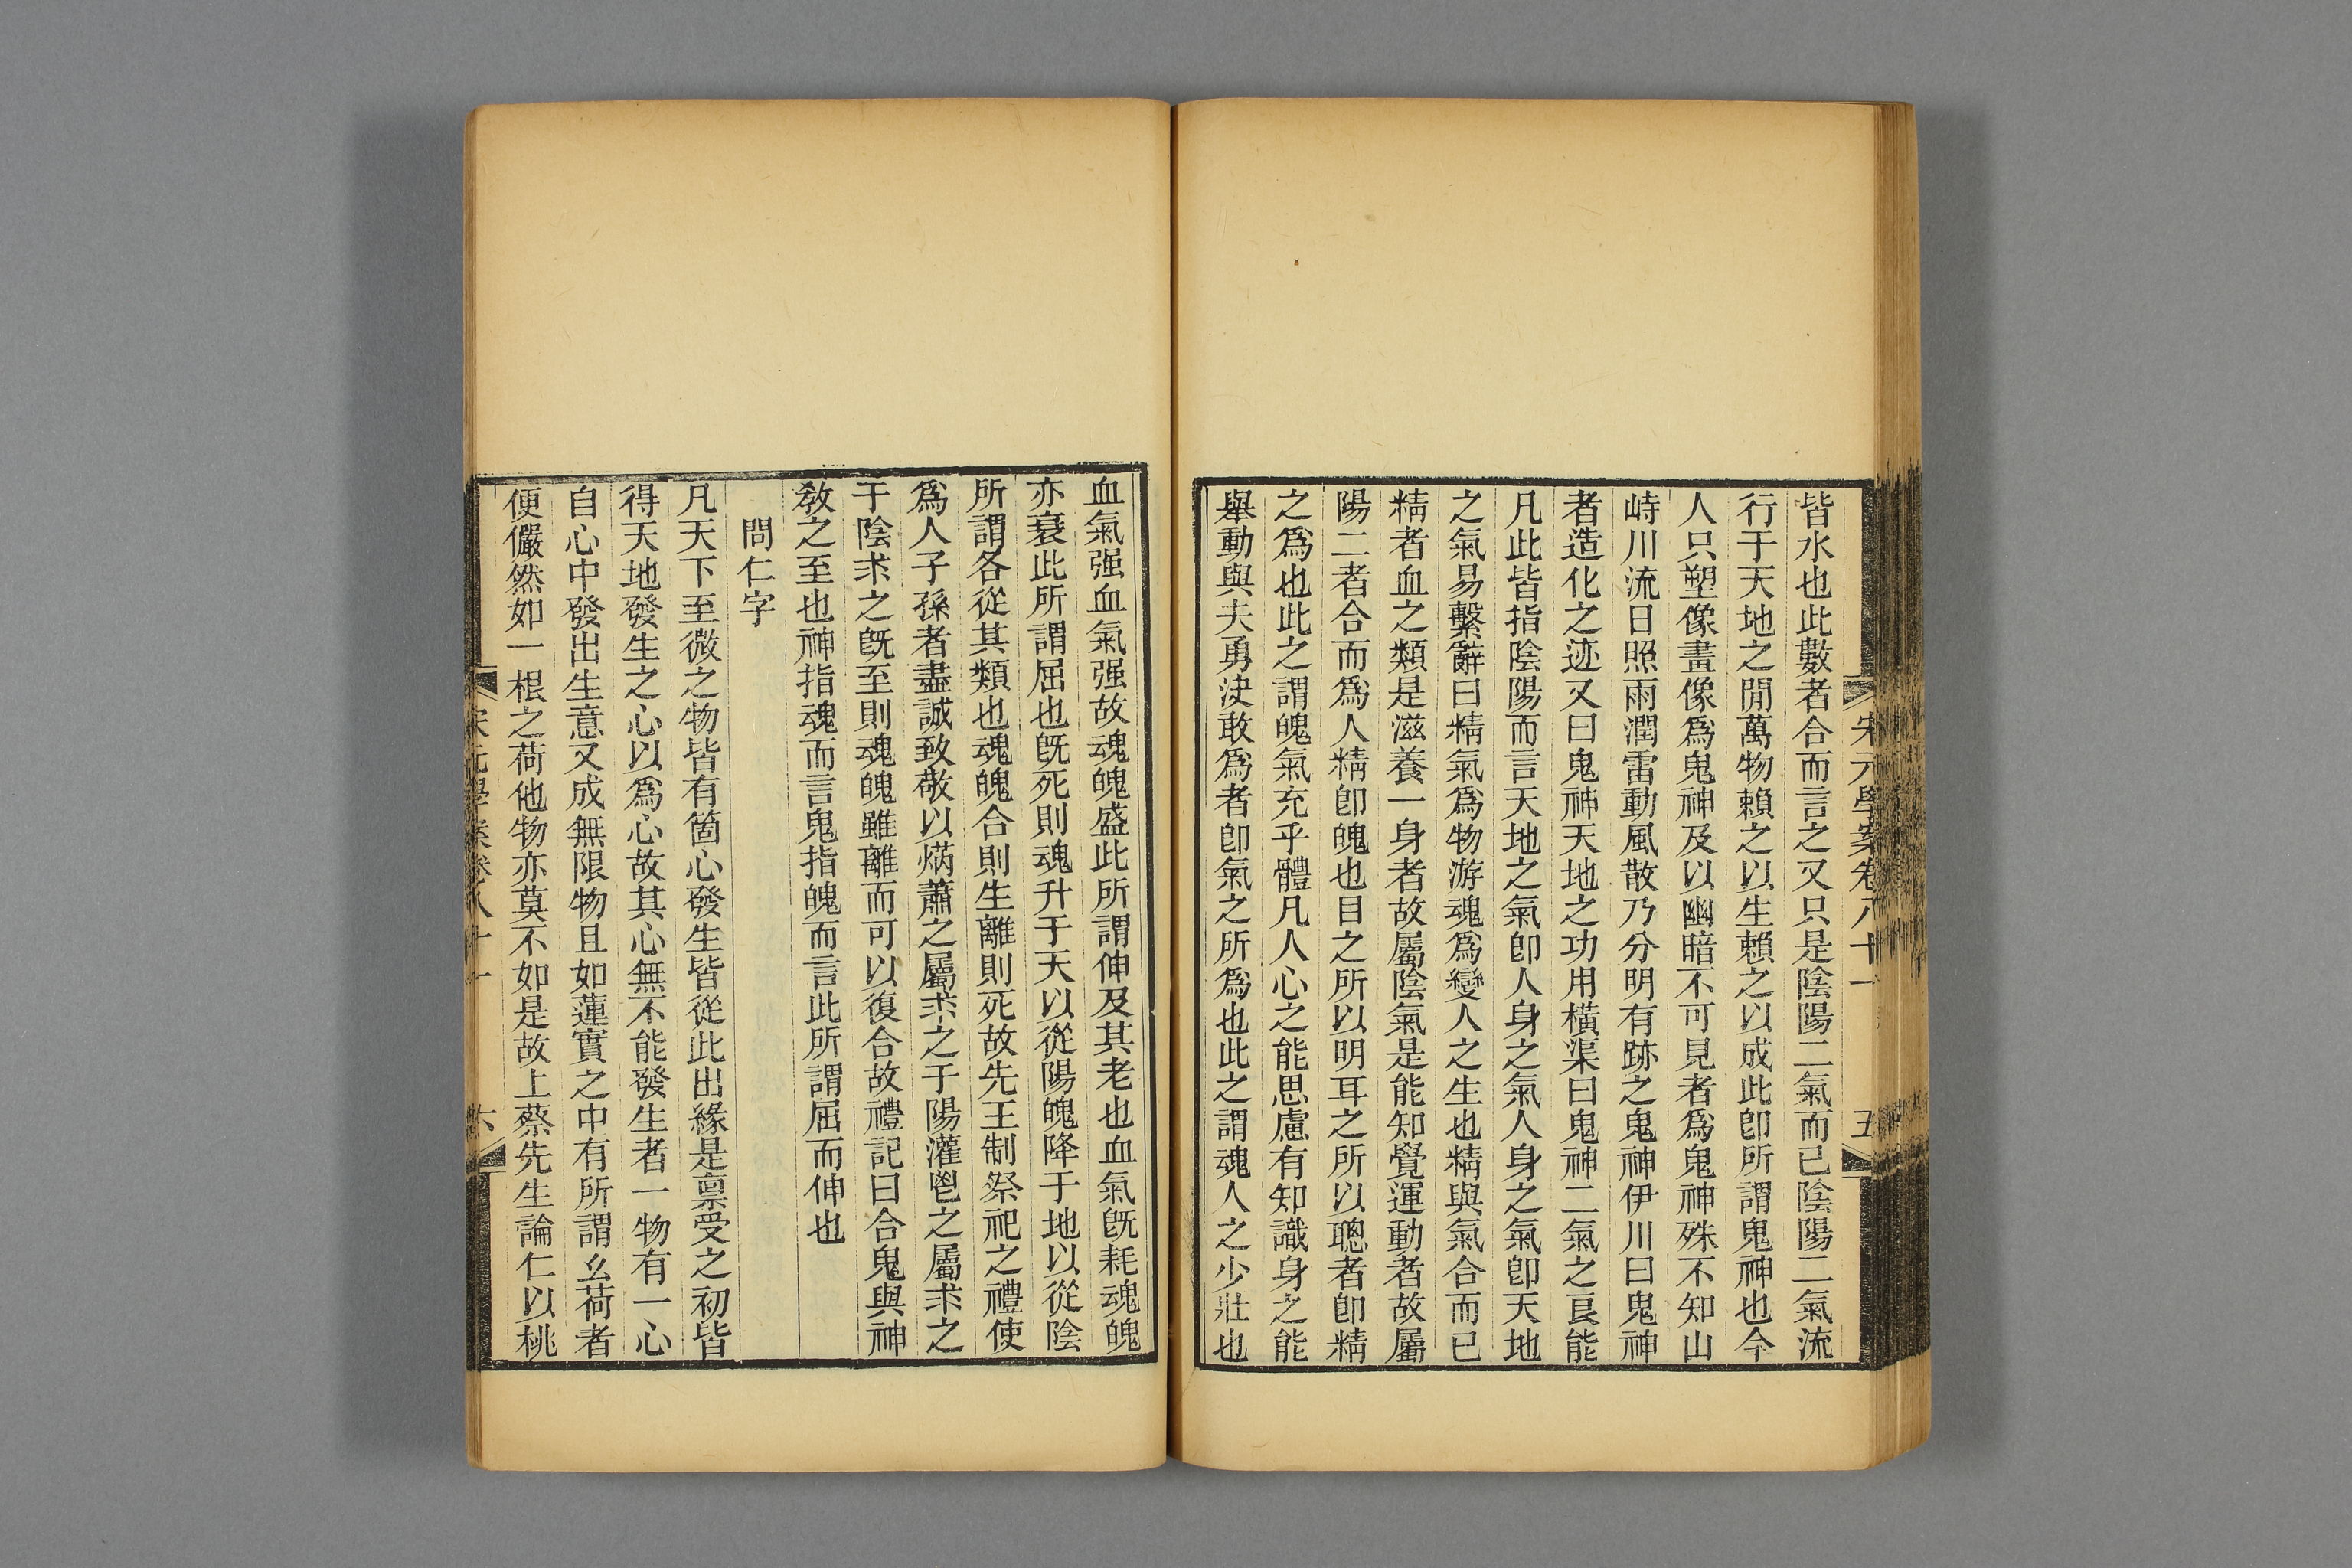 宋元學案卷八十一
五
皆水也此數者合而言之又只是陰陽二氣而已陰陽二氣流
行于天地之閒萬物賴之以生賴之以成此卽所謂鬼神也今
人只塑像畫像爲鬼神及以幽暗不可見者爲鬼神殊不知山
峙川流日照雨潤雷動風散乃分明有跡之鬼神伊川曰鬼神
者造化之迹又曰鬼神天地之功用橫渠曰鬼神二氣之良能
凡此皆指陰陽而言天地之氣卽人身之氣人身之氣卽天地
之氣易繫辭曰精氣爲物游魂爲變人之生也精與氣合而已
精者血之類是滋養一身者故屬陰氣是能知覺運動者故屬
陽二者合而爲人精卽魄也目之所以明耳之所以聰者卽精
之爲也此之謂魄氣充乎體凡人心之能思慮有知識身之能
舉動與夫勇決敢爲者卽氣之所爲也此之謂魂人之少壯也
血氣强血氣强故魂魄盛此所謂伸及其老也血氣旣耗魂魄
亦衰此所謂屈也旣死則魂升于天以從陽魄降于地以從陰
所謂各從其類也魂魄合則生離則死故先王制祭祀之禮使
爲人子孫者盡誠致敬以焫蕭之屬求之于陽灌鬯之屬求之
于陰求之旣至則魂魄雖離而可以復合故禮記曰合鬼與神
敎之至也神指魂而言鬼指魄而言此所謂屈而伸也
問仁字
凡天下至微之物皆有箇心發生皆從此出緣是稟受之初皆
得天地發生之心以爲心故其心無不能發生者一物有一心
自心中發出生意又成無限物且如蓮實之中有所謂幺荷者
便儼然如一根之荷他物亦莫不如是故上蔡先生論仁以桃
宋元學案卷八十一
六